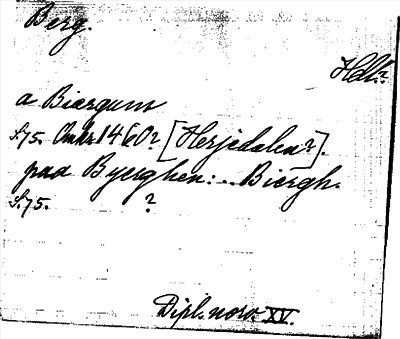 Berg.
Hdl?
a Biærgum
S. 75. Omkr. 1460? [Herjedalen?].
paa Byerghen: .. Biergh.
S. 75. ?
Dipl. norv. XV.